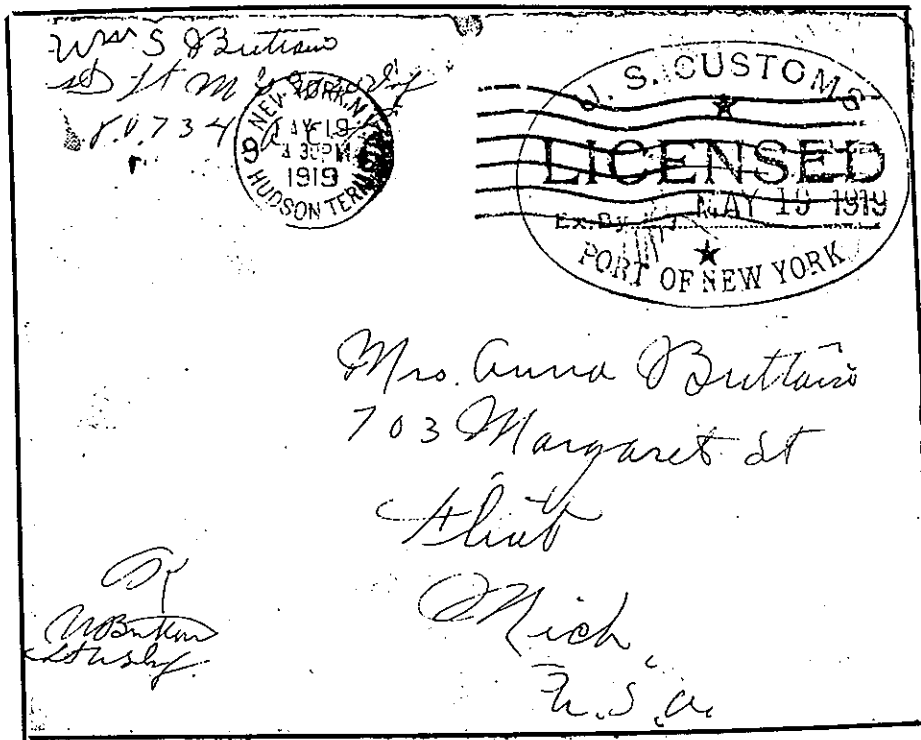 Wm S Brittain
NEW YORK, N.Y.
MAY 19
4 30 PM
1919
HUDSON TERM. STA.
9
U. S. CUSTOMS
LICENSED
Ex. By MAY 19 1919
PORT OF NEW YORK
Mrs. Anna Brittain
703 Margaret St
Flint
Mich,
U.S.A.
OK